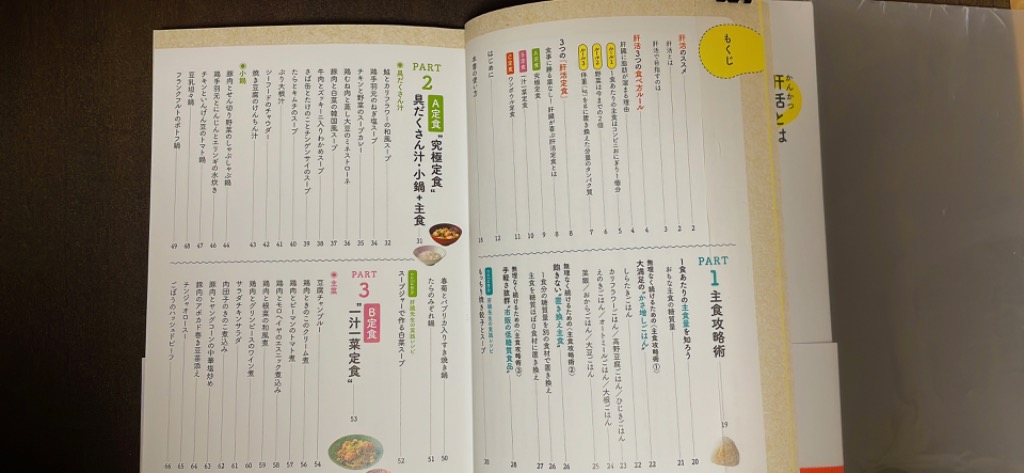 かんかつ
肝活とは
もくじ
肝活のススメ 2
肝活とは 2
肝活で目指すのは 3
肝活3つの食べ方ルール 4
肝臓に脂肪が溜まる理由 4
ルール1 一食あたりの主食はコンビニおにぎり1個分 5
ルール2 野菜は今までの2倍 6
ルール3 体重「kg」をgに置き換えた分量のタンパク質 7
3つの「肝活定食」 8
食事に勝る薬なし!肝臓が喜ぶ肝活定食とは 8
A定食 究極定食 9
B定食 一汁一菜定食 10
C定食 ワンボウル定食 11
はじめに 12
本書の使い方
PART
1
主食攻略術 19
1食あたりの主食量を知ろう 20
おもな主食の糖質量 21
無理なく続けるための〈主食攻略術①〉 22
大満足の"かさ増しごはん" 22
しらたきごはん
カリフラワーごはん/高野豆腐ごはん/ひじきごはん
えのきごはん/オートミールごはん/大根ごはん 24
菜飯/おからごはん/大豆ごはん 25
無理なく続けるための〈主食攻略術②〉 26
飽きない"置き換え主食" 26
一食分の糖質量を別の食材で置き換え 26
主食を糖質ほぼ0食材に置き換え 27
無理なく続けるための〈主食攻略術③〉 28
手軽さ抜群!市販の低糖質食品 28
もっちり焼き餃子とスープ 30
PART
2
A定食
"究極定食"
具だくさん汁・小鍋+主食 31
●具だくさん汁
鮭とカリフラワーの和風スープ 32
鶏手羽元のねぎ塩スープ 34
チキンと野菜のスープカレー 35
鶏むね肉と蒸し大豆のミネストローネ 36
豚肉と白菜の韓国風スープ 37
牛肉とズッキーニ入りわかめスープ 38
さば缶とたけのことチンゲンサイのスープ 39
たらとキムチのスープ 40
ぶり大根汁 41
シーフードのチャウダー 42
焼き豆腐のけんちん汁 43
●小鍋
豚肉とせん切り野菜のしゃぶしゃぶ鍋 44
鶏手羽元とにんじんとエリンギの水炊き 46
チキンといんげん豆のトマト鍋 47
豆乳坦々鍋 48
フランクフルのポトフ鍋 49
春菊とパプリカ入りすき焼き鍋 50
たらのみぞれ鍋 51
スープジャーで作る白菜スープ 52
PART
3
B定食
"一汁一菜定食" 53
●主菜
豆腐チャンプルー 54
鶏肉ときのこのクリーム煮 56
鶏肉とピーマンのトマト煮 57
鶏肉とモロヘイヤのエスニック煮込み 58
鶏肉と根菜の和風煮 59
鶏肉とグリンピースのワイン煮 60
サラダチキンサラダ 61
肉団子のきのこ煮込み 62
豚肉とヤングコーンの中華塩炒め 63
豚肉のアボカド巻き豆苗添え 64
チンジャオロース 65
ごぼうのハッシュドビーフ 66